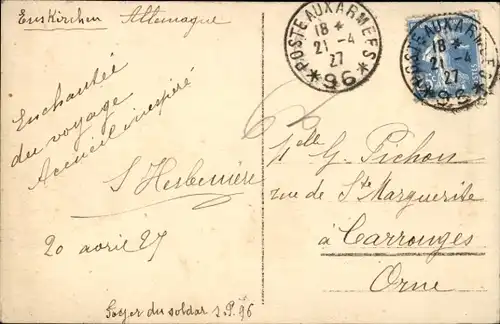 Euskirchen Allemagne
POSTE AUX ARMEES
18 *
21 - 4
27
* 96 *
POSTE AUX ARMEES
18 *
21 - 4
27
* 96 *
Enchantée
du voyage
Accueil inespéré
20 avril 27
Melle G. Pichon
rue de Ste Marguerite
à Carrouges
Orne
Foyer du soldat S.P. 96